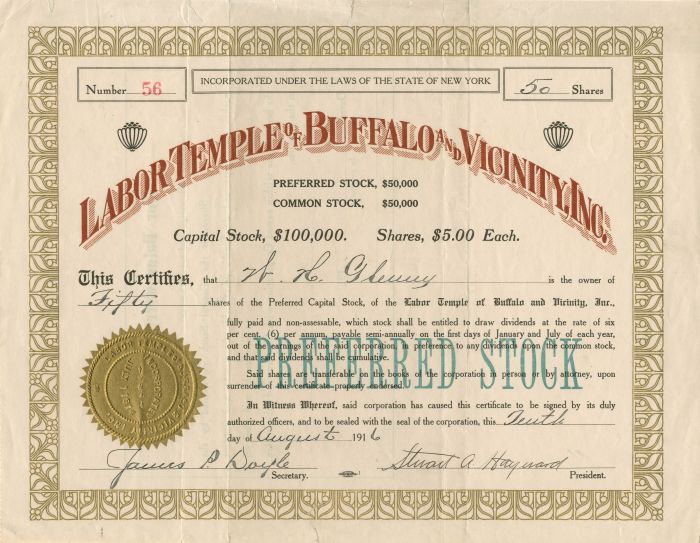 INCORPORATED UNDER THE LAWS OF THE STATE OF NEW YORK
Number 56
50 Shares
LABOR TEMPLE OF BUFFALO AND VICINITY, INC.
PREFERRED STOCK, $50,000
COMMON STOCK, $50,000
Capital Stock, $100,000. Shares, $5.00 Each.
This Certifies, that W. H. Glenny is the owner of
Fifty shares of the Preferred Capital Stock, of the Labor Temple of Buffalo and Vicinity, Inc.,
fully paid and non-assessable, which stock shall be entitled to draw dividends at the rate of six
per cent, (6) per annum, payable semi-annually on the first days of January and July of each year,
out of the earnings of the said corporation in preference to any dividends upon the common stock,
and that said dividends shall be cumulative.
PREFERRED STOCK
Said shares are transferable on the books of the corporation in person or by attorney, upon
surrender of this certificate properly endorsed.
In Witness Whereof, said corporation has caused this certificate to be signed by its duly
authorized officers, and to be sealed with the seal of the corporation, this Tenth
day of August 1916
James P Doyle Stewart A Hayward
Secretary. President.